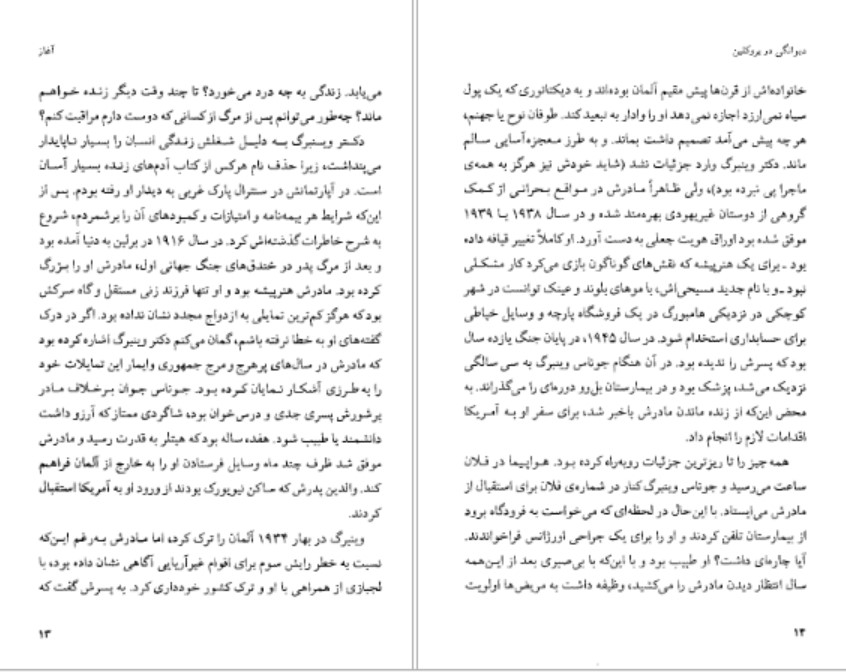 آغاز
می‌یابد. زندگی به چه درد می‌خورد؟ تا چند وقت دیگر زنده خواهم
ماند؟ چه‌طور می‌توانم پس از مرگ از کسانی که دوست دارم مراقبت کنم؟
دکتر وینبرگ به دلیل شغلش زندگی انسان را بسیار ناپایدار
می‌پنداشت، زیرا حذف نام هرکس از کتاب آدم‌های زنده بسیار آسان
است. در آپارتمانش در سنترال پارک غربی به دیدار او رفته بودم. پس از
این‌که شرایط هر بیمه‌نامه و امتیازات و کمبودهای آن را برشمردم، شروع
به شرح خاطرات گذشته‌اش کرد. در سال ۱۹۱۶ در برلین به دنیا آمده بود
و بعد از مرگ پدر در خندق‌های جنگ جهانی اول، مادرش او را بزرگ
کرده بود. مادرش هنرپیشه بود و او تنها فرزند زنی مستقل و گاه سرکش
بود که هرگز کم‌ترین تمایلی به ازدواج مجدد نشان نداده بود. اگر در درک
گفته‌های او به خطا نرفته باشم، گمان می‌کنم دکتر وینبرگ اشاره کرده بود
که مادرش در سال‌های پرهرج و مرج جمهوری وایمار این تمایلات خود
را به طرزی آشکار نمایان کرده بود. جوناس جوان برخلاف مادر
پرشورش پسری جدی و درس‌خوان بود، شاگردی ممتاز که آرزو داشت
دانشمند یا طبیب شود. هفده ساله بود که هیتلر به قدرت رسید و مادرش
موفق شد ظرف چند ماه وسایل فرستادن او را به خارج از آلمان فراهم
کند. والدین پدرش که ساکن نیویورک بودند از ورود او به آمریکا استقبال
کردند.
وینبرگ در بهار ۱۹۳۴ آلمان را ترک کرد، اما مادرش به‌رغم این‌که
نسبت به خطر رایش سوم برای اقوام غیرآریایی آگاهی نشان داده بود، با
لجبازی از همراهی با او و ترک کشور خودداری کرد. به پسرش گفت که
۱۳
دیوانگی در بروکلین
خانواده‌اش از قرن‌ها پیش مقیم آلمان بوده‌اند و به دیکتاتوری که یک پول
سیاه نمی‌ارزد اجازه نمی‌دهد او را وادار به تبعید کند. طوفان نوح یا جهنم،
هر چه پیش می‌آمد تصمیم داشت بماند. و به طرز معجزه‌آسایی سالم
ماند. دکتر وینبرگ وارد جزئیات نشد (شاید خودش نیز هرگز به همه‌ی
ماجرا پی نبرده بود)، ولی ظاهراً مادرش در مواقع بحرانی از کمک
گروهی از دوستان غیریهودی بهره‌مند شده و در سال ۱۹۳۸ یا ۱۹۳۹
موفق شده بود اوراق هویت جعلی به دست آورد. او کاملاً تغییر قیافه داده
بود ـ برای یک هنرپیشه که نقش‌های گوناگون بازی می‌کرد کار مشکلی
نبود ـ و با نام جدید مسیحی‌اش، با موهای بلوند و عینک توانست در شهر
کوچکی در نزدیکی هامبورگ در یک فروشگاه پارچه و وسایل خیاطی
برای حسابداری استخدام شود. در سال ۱۹۴۵، در پایان جنگ یازده سال
بود که پسرش را ندیده بود. در آن هنگام جوناس وینبرگ به سی سالگی
نزدیک می‌شد، پزشک بود و در بیمارستان بل‌رو دوره‌ای را می‌گذراند. به
محض این‌که از زنده ماندن مادرش باخبر شد، برای سفر او به آمریکا
اقدامات لازم را انجام داد.
همه چیز را تا ریزترین جزئیات روبه‌راه کرده بود. هواپیما در فلان
ساعت می‌رسید و جوناس وینبرگ کنار در شماره‌ی فلان برای استقبال از
مادرش می‌ایستاد. با این‌حال در لحظه‌ای که می‌خواست به فرودگاه برود
از بیمارستان تلفن کردند و او را برای یک جراحی اورژانس فراخواندند.
آیا چاره‌ای داشت؟ او طبیب بود و با این‌که با بی‌صبری بعد از این‌همه
سال انتظار دیدن مادرش را می‌کشید، وظیفه داشت به مریض‌ها اولویت
۱۴